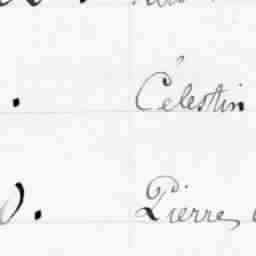 Célestin
Pierre,